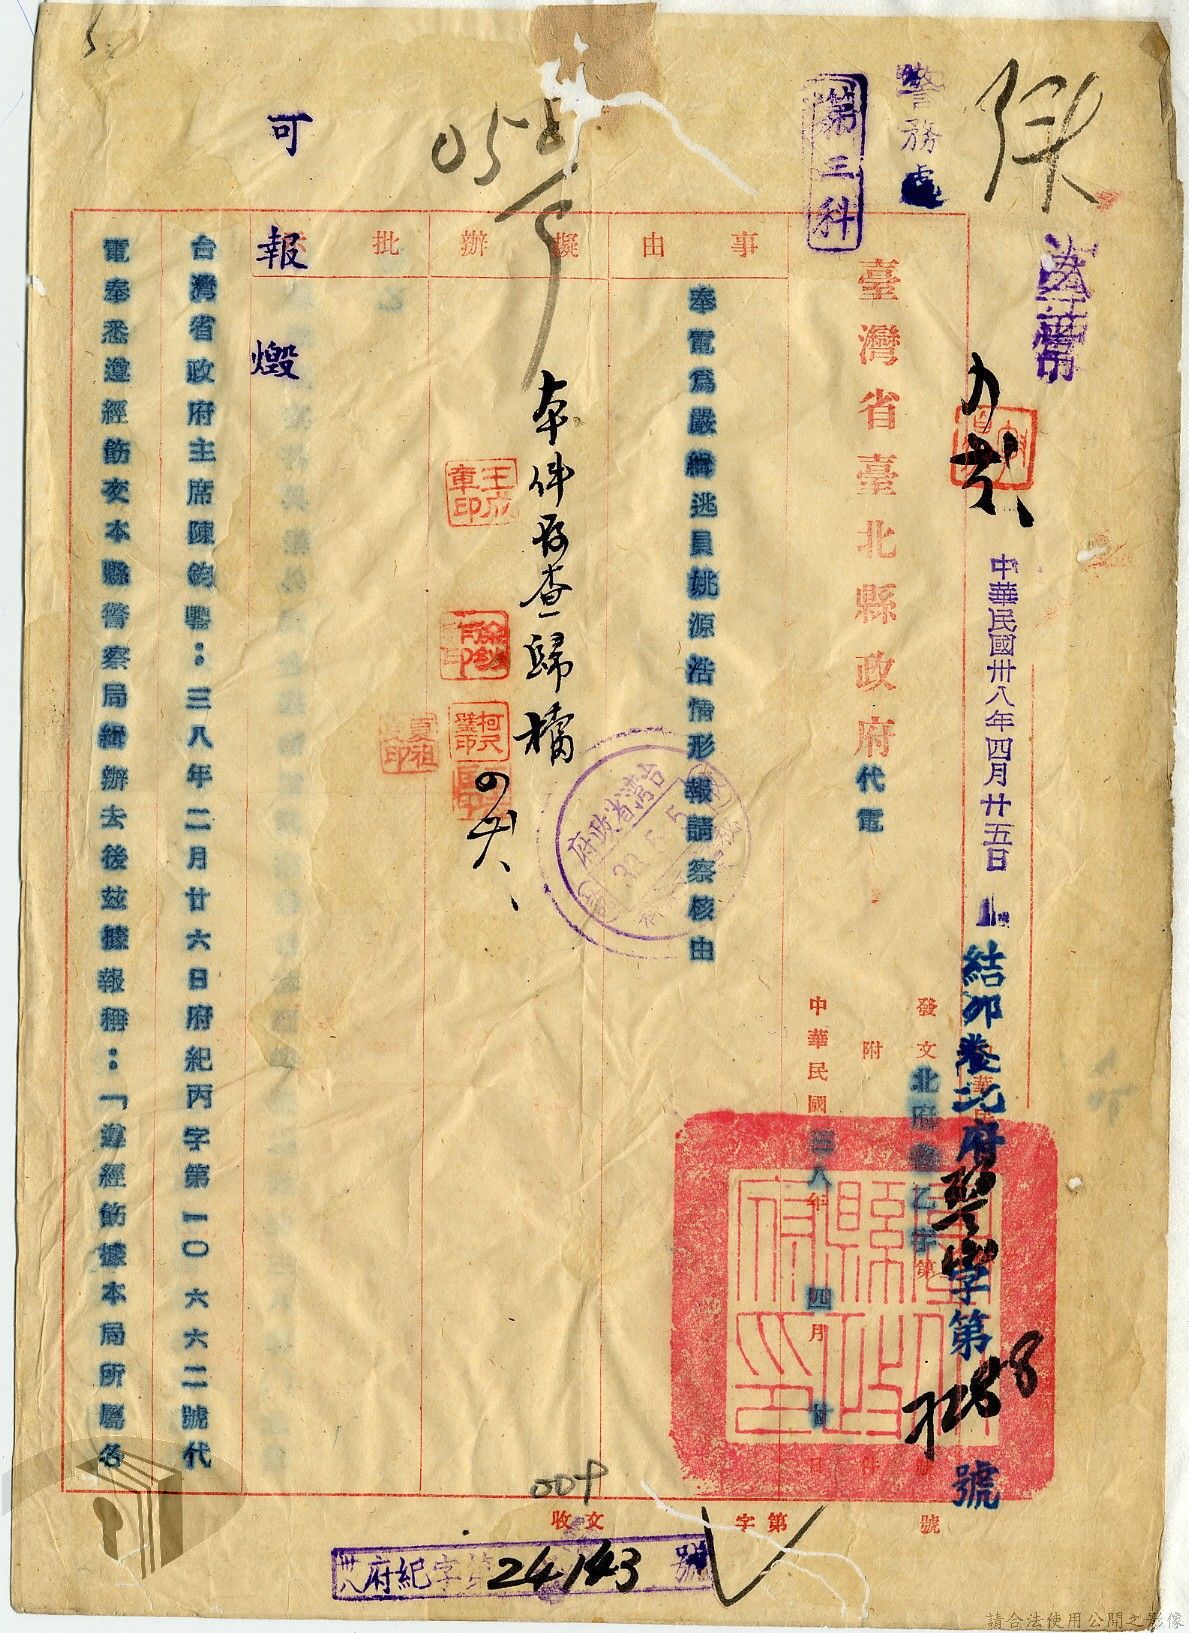 警務處
第三科
中華民國卅八年四月廿五日
結卯卷北府警字第7288號
臺灣省臺北縣政府代電
發文北府警乙字第
號
附件
中華民國三八年四月廿日
事由
擬辦
批
奉電為嚴緝逃員姚源浩情形報請察核由
台灣省政府
38.5.5
本件存查歸檔
王成章印
可報燬
台灣省政府主席陳鈞鑒：三八年二月廿六日府紀丙字第一〇六六二號代
電奉悉遵經飭交本縣警察局緝辦去後茲據報稱：「遵經飭據本局所屬各
009
收文
字第
號
卅八府紀字第24143號
請合法使用公開之影像